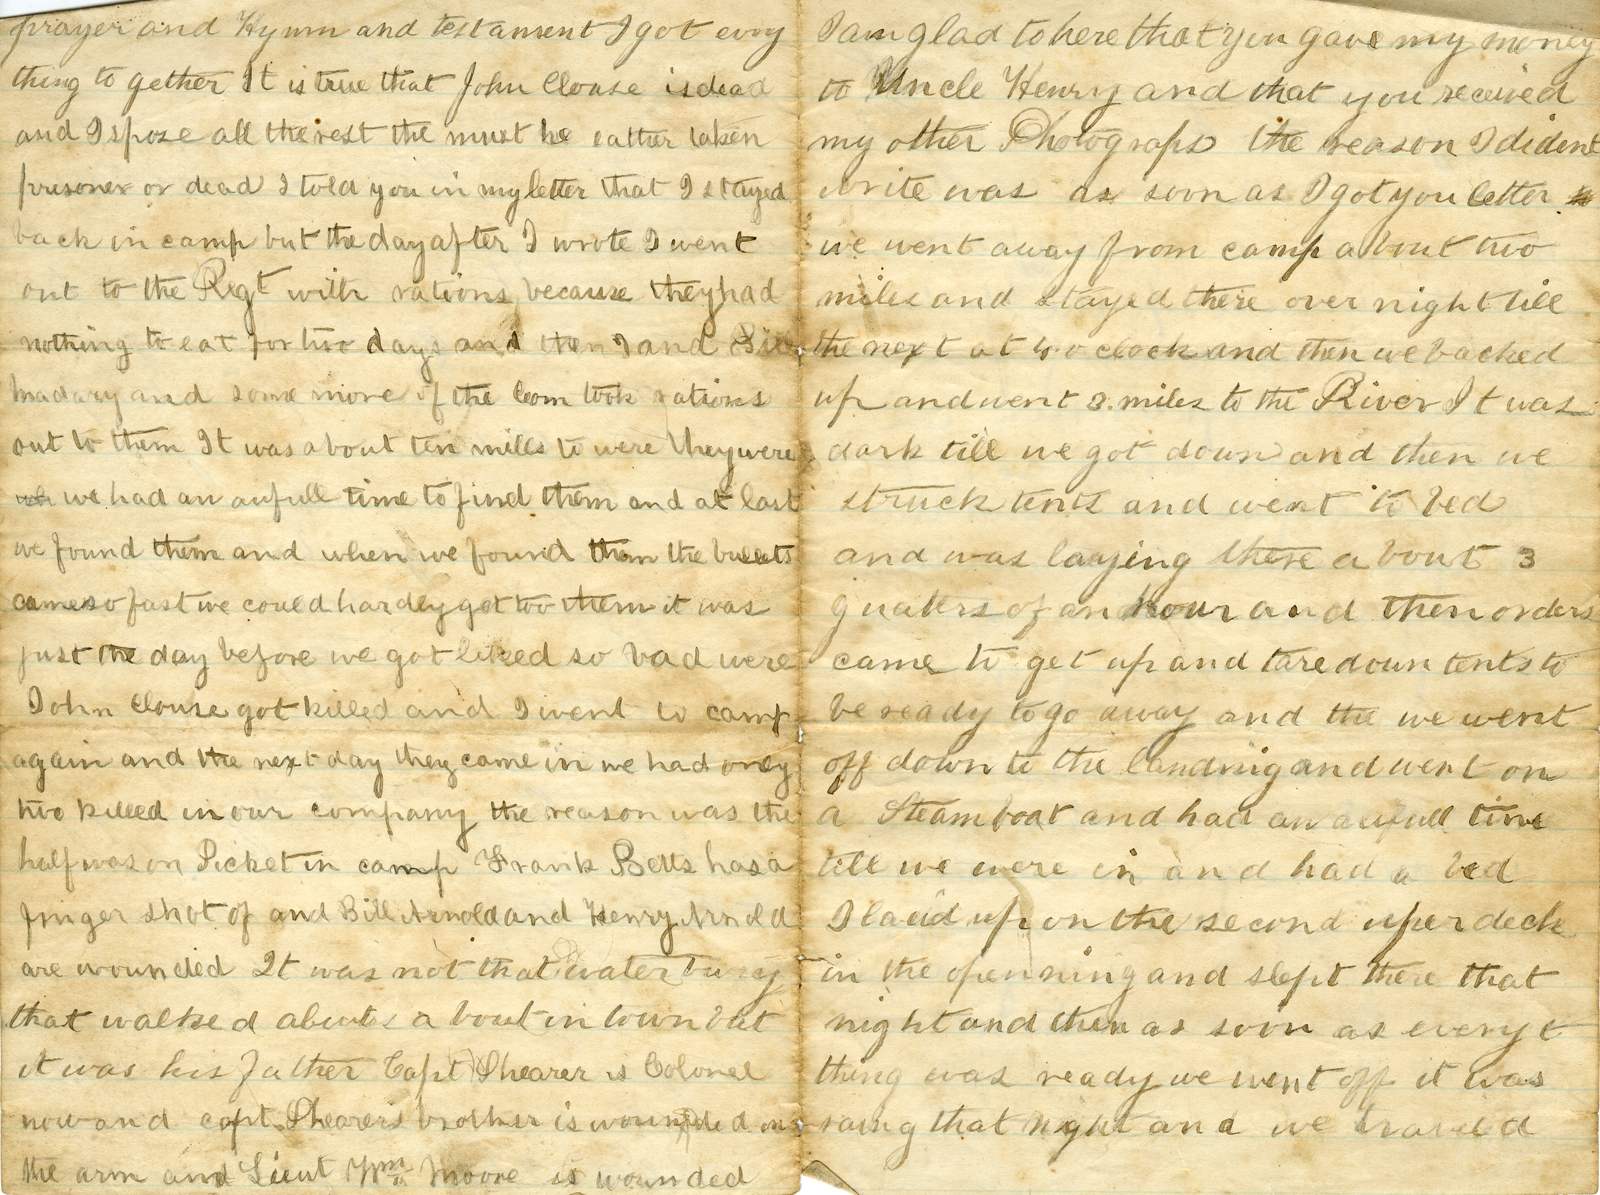 prayer and Hymn and testament I got evry
thing to gether It is true that John Clouse is dead
and I spose all the rest the must be eather taken
prisoner or dead I told you in my letter that I stayed
back in camp but the day after I wrote I went
out to the Regt with rations because they had
nothing to eat for two days and then I and Bill
madary and some more of the Com took rations
out to them It was about ten mills to were they were
we had an aufull time to find them and at last
we found them and when we found them the bullets
came so fast we could hardly get too them it was
just the day before we got liked so bad were
John Clouse got killed and I went to camp
again and the next day they came in we had only
two killed in our company the reason was the
half was on Picket in camp Frank Betts has a
finger shot of and Bill Arnold and Henry Arnold
are wounded It was not that waterbury
that walked abouts a bout in town but
it was his father Capt Shearer is Colonel
now and capt. Shearer's brother is wounded on
the arm and Lieut Wm Moore is wounded
I am glad to here that you gave my money
to Uncle Henry and that you received
my other Photograps the reason I dident
write was as soon as I got you letter
we went away from camp about two
miles and stayed there over night till
the next at 4 o clock and then we backed
up and went 3 miles to the River It was
dark till we got down and then we
struck tents and went to bed
and was laying there a bout 3
quaters of an hour and then orders
came to get up and tare down tents to
be ready to go away and the we went
off down to the landnig and went on
a Steamboat and had an aufull time
till we were in and had a bed
I laid up on the second uper deck
in the openning and slept there that
night and then as soon as every t
thing was ready we went off it was
raing that night and we traveld